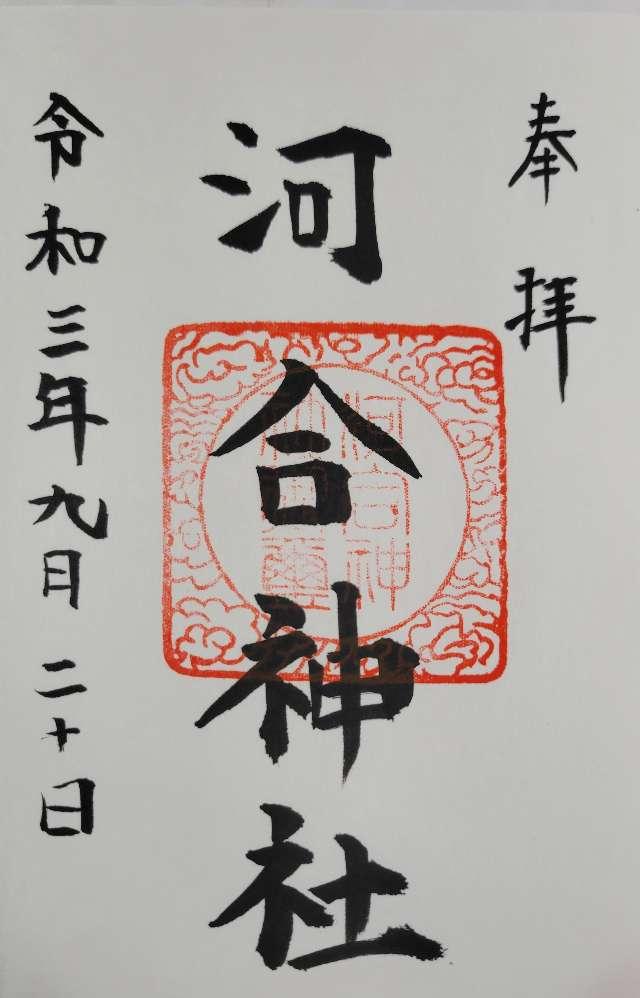 奉拝
河合神社
令和三年九月二十日